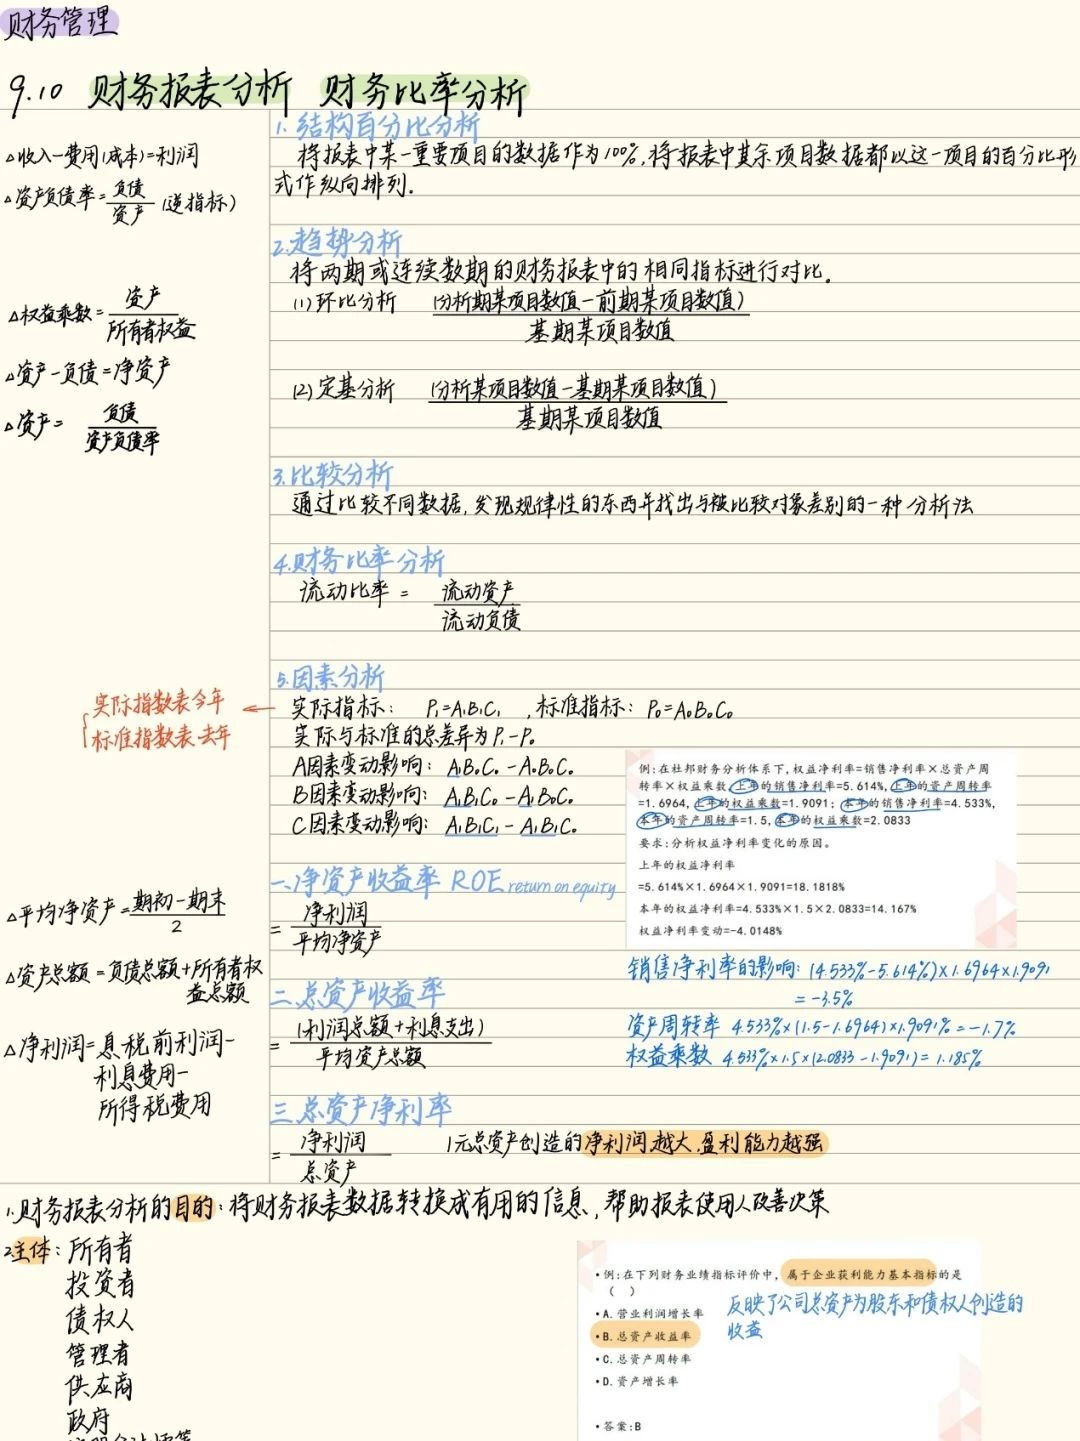 财务管理
9.10 财务报表分析 财务比率分析
△收入-费用(成本)=利润
△资产负债率=负债/资产 (逆指标)
△权益乘数=资产/所有者权益
△资产-负债=净资产
△资产=负债/资产负债率
1.结构百分比分析
将报表中某一重要项目的数据作为100%,将报表中其余项目数据都以这一项目的百分比形
式作纵向排列.
2.趋势分析
将两期或连续数期的财务报表中的相同指标进行对比.
(1)环比分析 (分析期某项目数值-前期某项目数值)
基期某项目数值
(2)定基分析 (分析某项目数值-基期某项目数值)
基期某项目数值
3.比较分析
通过比较不同数据,发现规律性的东西并找出与被比较对象差别的一种分析法
4.财务比率分析
流动比率 = 流动资产
流动负债
5.因素分析
实际指数表今年
标准指数表去年
实际指标: P₁=A₁B₁C₁ ,标准指标: P₀=A₀B₀C₀
实际与标准的总差异为P₁-P₀
A因素变动影响: A₁B₀C₀-A₀B₀C₀
B因素变动影响: A₁B₁C₀-A₁B₀C₀
C因素变动影响: A₁B₁C₁-A₁B₁C₀
例:在杜邦财务分析体系下,权益净利率=销售净利率×总资产周
转率×权益乘数,上年的销售净利率=5.614%,上年的资产周转率
=1.6964,上年的权益乘数=1.9091;本年的销售净利率=4.533%,
本年的资产周转率=1.5,本年的权益乘数=2.0833
要求:分析权益净利率变化的原因。
上年的权益净利率
=5.614%×1.6964×1.9091=18.1818%
本年的权益净利率=4.533%×1.5×2.0833=14.167%
权益净利率变动=-4.0148%
销售净利率的影响: (4.533%-5.614%)×1.6964×1.9091
=-3.5%
资产周转率 4.533%×(1.5-1.6964)×1.9091%=-1.7%
权益乘数 4.533%×1.5×(2.0833-1.9091)=1.185%
一、净资产收益率 ROE return on equity
= 净利润
平均净资产
△平均净资产=期初-期末
2
△资产总额=负债总额+所有者权
益总额
△净利润=息税前利润-
利息费用-
所得税费用
二.总资产收益率
= (利润总额+利息支出)
平均资产总额
三.总资产净利率
= 净利润 1元总资产创造的净利润越大,盈利能力越强
总资产
1.财务报表分析的目的:将财务报表数据转换成有用的信息,帮助报表使用人改善决策
2.主体:所有者
投资者
债权人
管理者
供应商
政府
•例:在下列财务业绩指标评价中,属于企业获利能力基本指标的是
( )
•A.营业利润增长率
•B.总资产收益率
•C.总资产周转率
•D.资产增长率
•答案:B
反映了公司总资产为股东和债权人创造的
收益